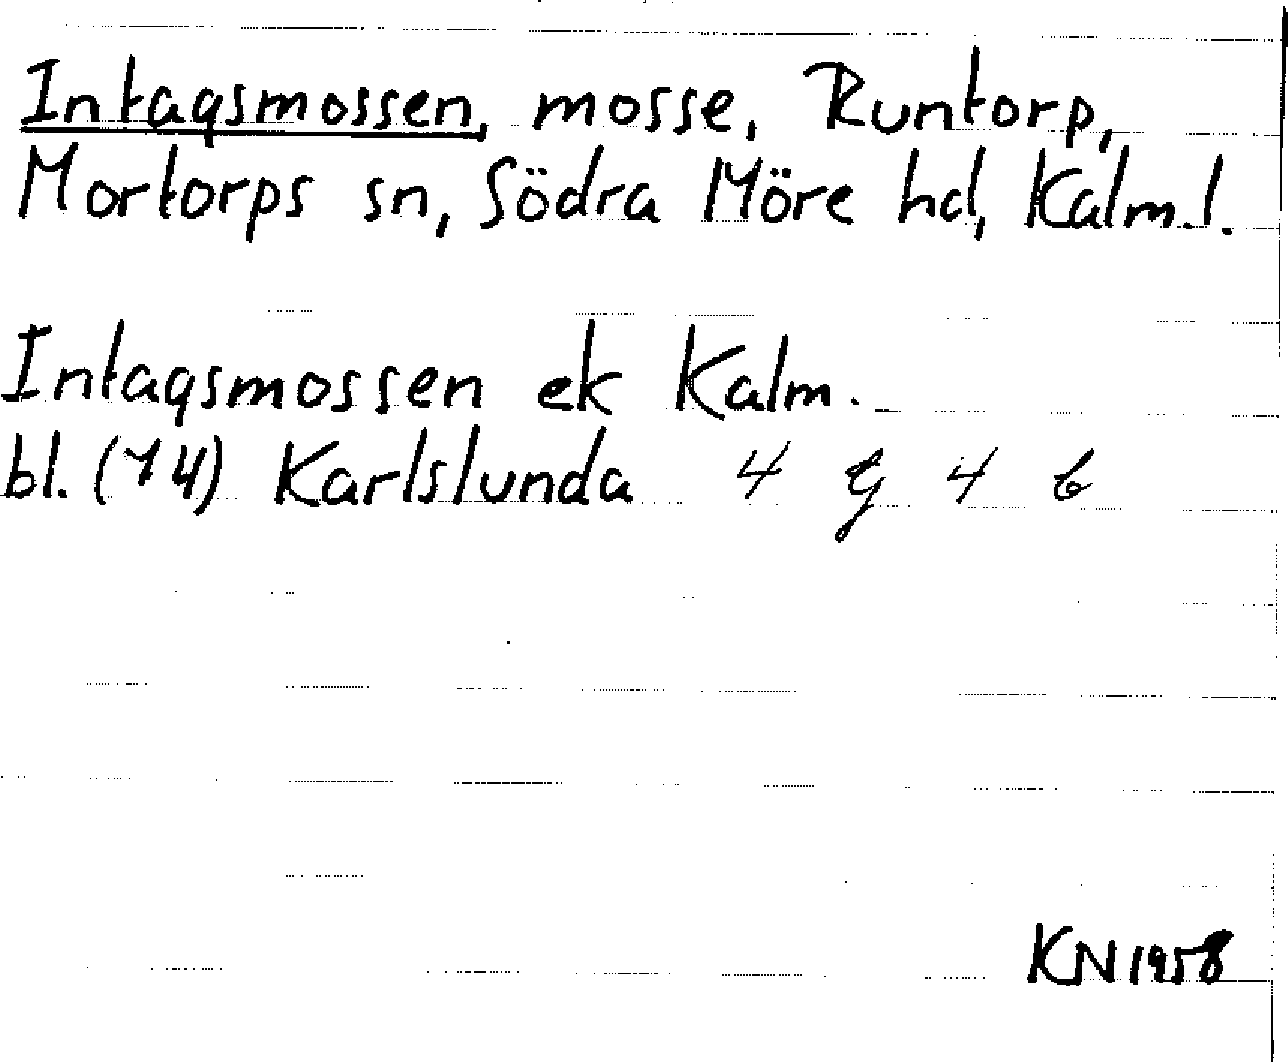 Intagsmossen, mosse, Runtorp,
Mortorps sn, Södra Möre hd, Kalm. l.
Intagsmossen ek Kalm.
bl. (14) Karlslunda 4 G 4 b
KN 1958